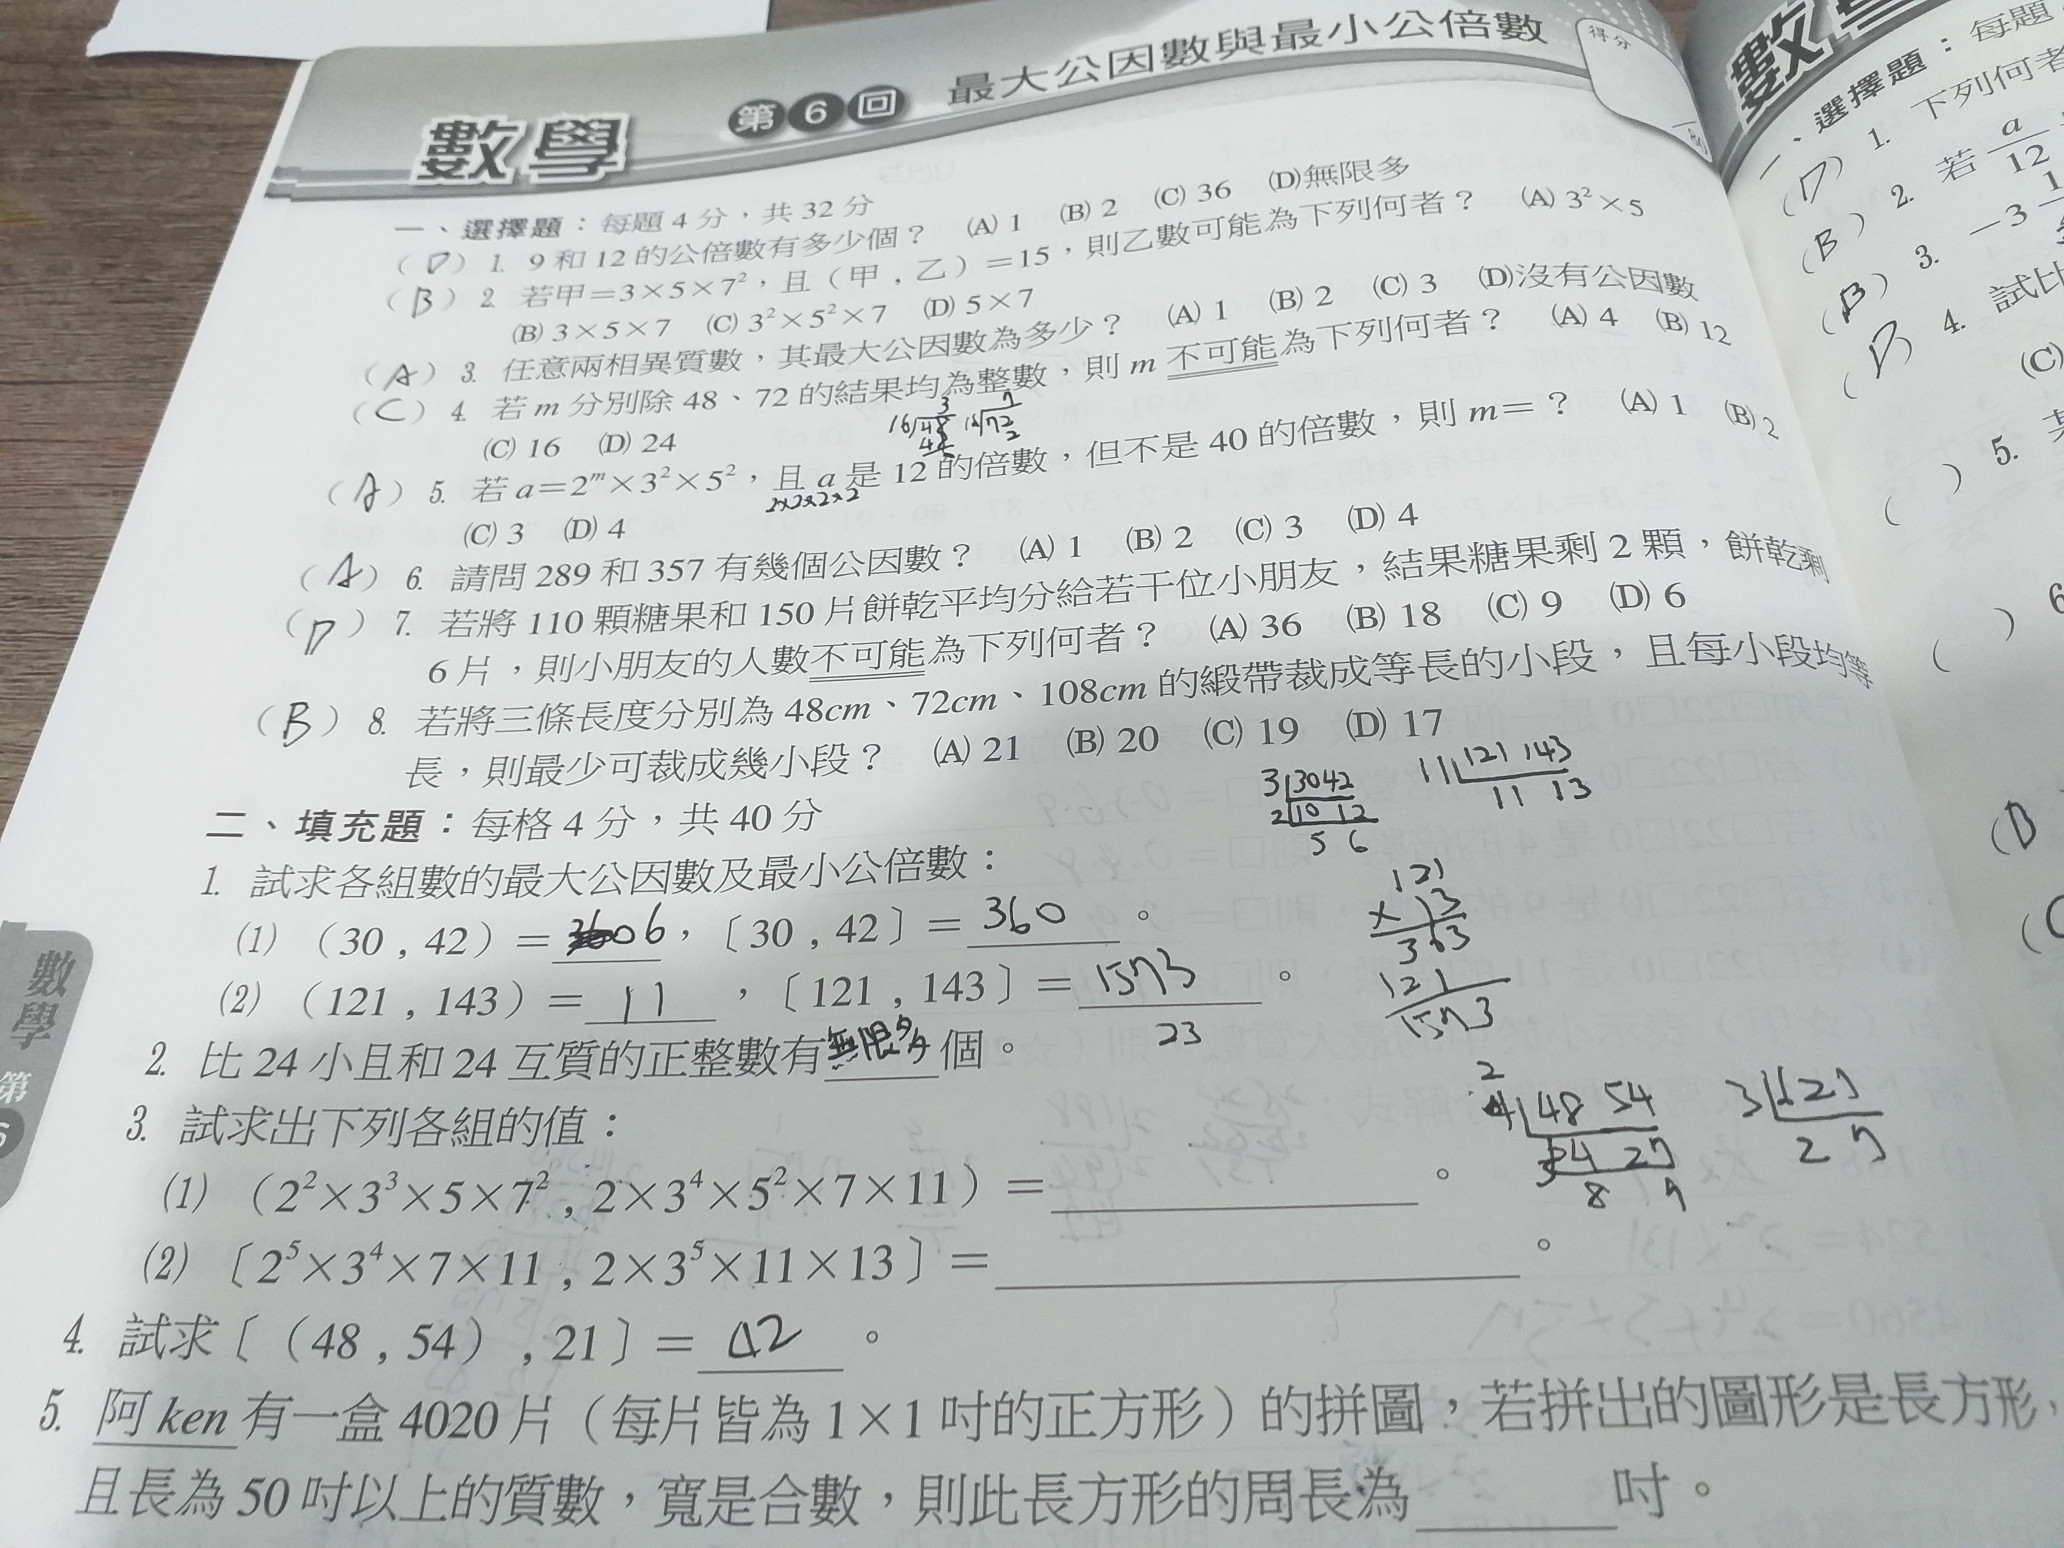 數學 第6回 最大公因數與最小公倍數 得分
一、選擇題：每題4分，共32分
(D) 1. 9和12的公倍數有多少個？ (A) 1 (B) 2 (C) 36 (D)無限多
(B) 2. 若甲＝3×5×7²，且（甲，乙）＝15，則乙數可能為下列何者？ (A) 3²×5
(B) 3×5×7 (C) 3²×5²×7 (D) 5×7
(A) 3. 任意兩相異質數，其最大公因數為多少？ (A) 1 (B) 2 (C) 3 (D)沒有公因數
(C) 4. 若m分別除48、72的結果均為整數，則m不可能為下列何者？ (A) 4 (B) 12
(C) 16 (D) 24
(A) 5. 若a＝2ᵐ×3²×5²，且a是12的倍數，但不是40的倍數，則m＝？ (A) 1 (B) 2
2×2×2×2
(C) 3 (D) 4
(A) 6. 請問289和357有幾個公因數？ (A) 1 (B) 2 (C) 3 (D) 4
(D) 7. 若將110顆糖果和150片餅乾平均分給若干位小朋友，結果糖果剩2顆，餅乾剩
6片，則小朋友的人數不可能為下列何者？ (A) 36 (B) 18 (C) 9 (D) 6
(B) 8. 若將三條長度分別為48cm、72cm、108cm的緞帶裁成等長的小段，且每小段均等
長，則最少可裁成幾小段？ (A) 21 (B) 20 (C) 19 (D) 17
3 30 42
2 10 12
5 6
11 121 143
11 13
二、填充題：每格4分，共40分
1. 試求各組數的最大公因數及最小公倍數：
(1) （30，42）＝6，〔30，42〕＝360。
(2) （121，143）＝11，〔121，143〕＝1573。
23
121
×13
363
121
1573
2. 比24小且和24互質的正整數有無限多個。
3. 試求出下列各組的值：
2 48 54
3 24 27
8 9
3 6 21
2 7
(1) （2²×3³×5×7²，2×3⁴×5²×7×11）＝。
(2) 〔2⁵×3⁴×7×11，2×3⁵×11×13〕＝。
4. 試求〔（48，54），21〕＝42。
5. 阿ken有一盒4020片（每片皆為1×1吋的正方形）的拼圖，若拼出的圖形是長方形，
且長為50吋以上的質數，寬是合數，則此長方形的周長為吋。
數學 第
數學
一、選擇題：每題
(D) 1. 下列何者
(B) 2. 若a/12
(B) 3. −3
(D) 4. 試比
(C)
( ) 5.
( ) 6
(D